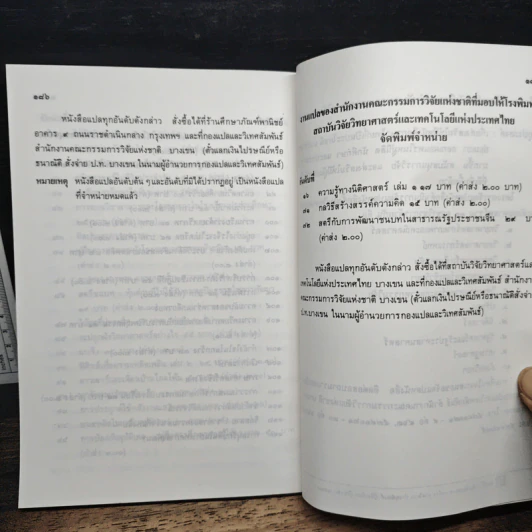 ๑๘๖
หนังสือแปลทุกอันดับดังกล่าว สั่งซื้อได้ที่ร้านศึกษาภัณฑ์พาณิชย์
อาคาร ๙ ถนนราชดำเนินกลาง กรุงเทพฯ และที่กองแปลและวิเทศสัมพันธ์
สำนักงานคณะกรรมการวิจัยแห่งชาติ บางเขน (ตั๋วแลกเงินไปรษณีย์หรือ
ธนาณัติ สั่งจ่าย ป.ท. บางเขน ในนามผู้อำนวยการกองแปลและวิเทศสัมพันธ์)
หมายเหตุ หนังสือแปลอันดับต้น ๆ และอันดับที่มิได้ปรากฏอยู่ เป็นหนังสือแปล
ที่จำหน่ายหมดแล้ว
งานแปลของสำนักงานคณะกรรมการวิจัยแห่งชาติที่มอบให้โรงพิมพ์
สถาบันวิจัยวิทยาศาสตร์และเทคโนโลยีแห่งประเทศไทย
จัดพิมพ์จำหน่าย
อันดับที่
ความรู้ทางนิติศาสตร์ เล่ม ๑ ๑๗ บาท (ค่าส่ง ๒.๐๐ บาท)
กลวิธีสร้างสรรค์ความคิด ๑๕ บาท (ค่าส่ง ๒.๐๐)
สตรีกับการพัฒนาชนบทในสาธารณรัฐประชาชนจีน ๒๔
(ค่าส่ง ๒.๐๐)
หนังสือแปลทุกอันดับดังกล่าว สั่งซื้อได้ที่สถาบันวิจัยวิทยาศาสตร์และ
เทคโนโลยีแห่งประเทศไทย บางเขน และที่กองแปลและวิเทศสัมพันธ์ สำนักงาน
คณะกรรมการวิจัยแห่งชาติ บางเขน (ตั๋วแลกเงินไปรษณีย์หรือธนาณัติสั่งจ่าย
ป.ท.บางเขน ในนามผู้อำนวยการกองแปลและวิเทศสัมพันธ์)